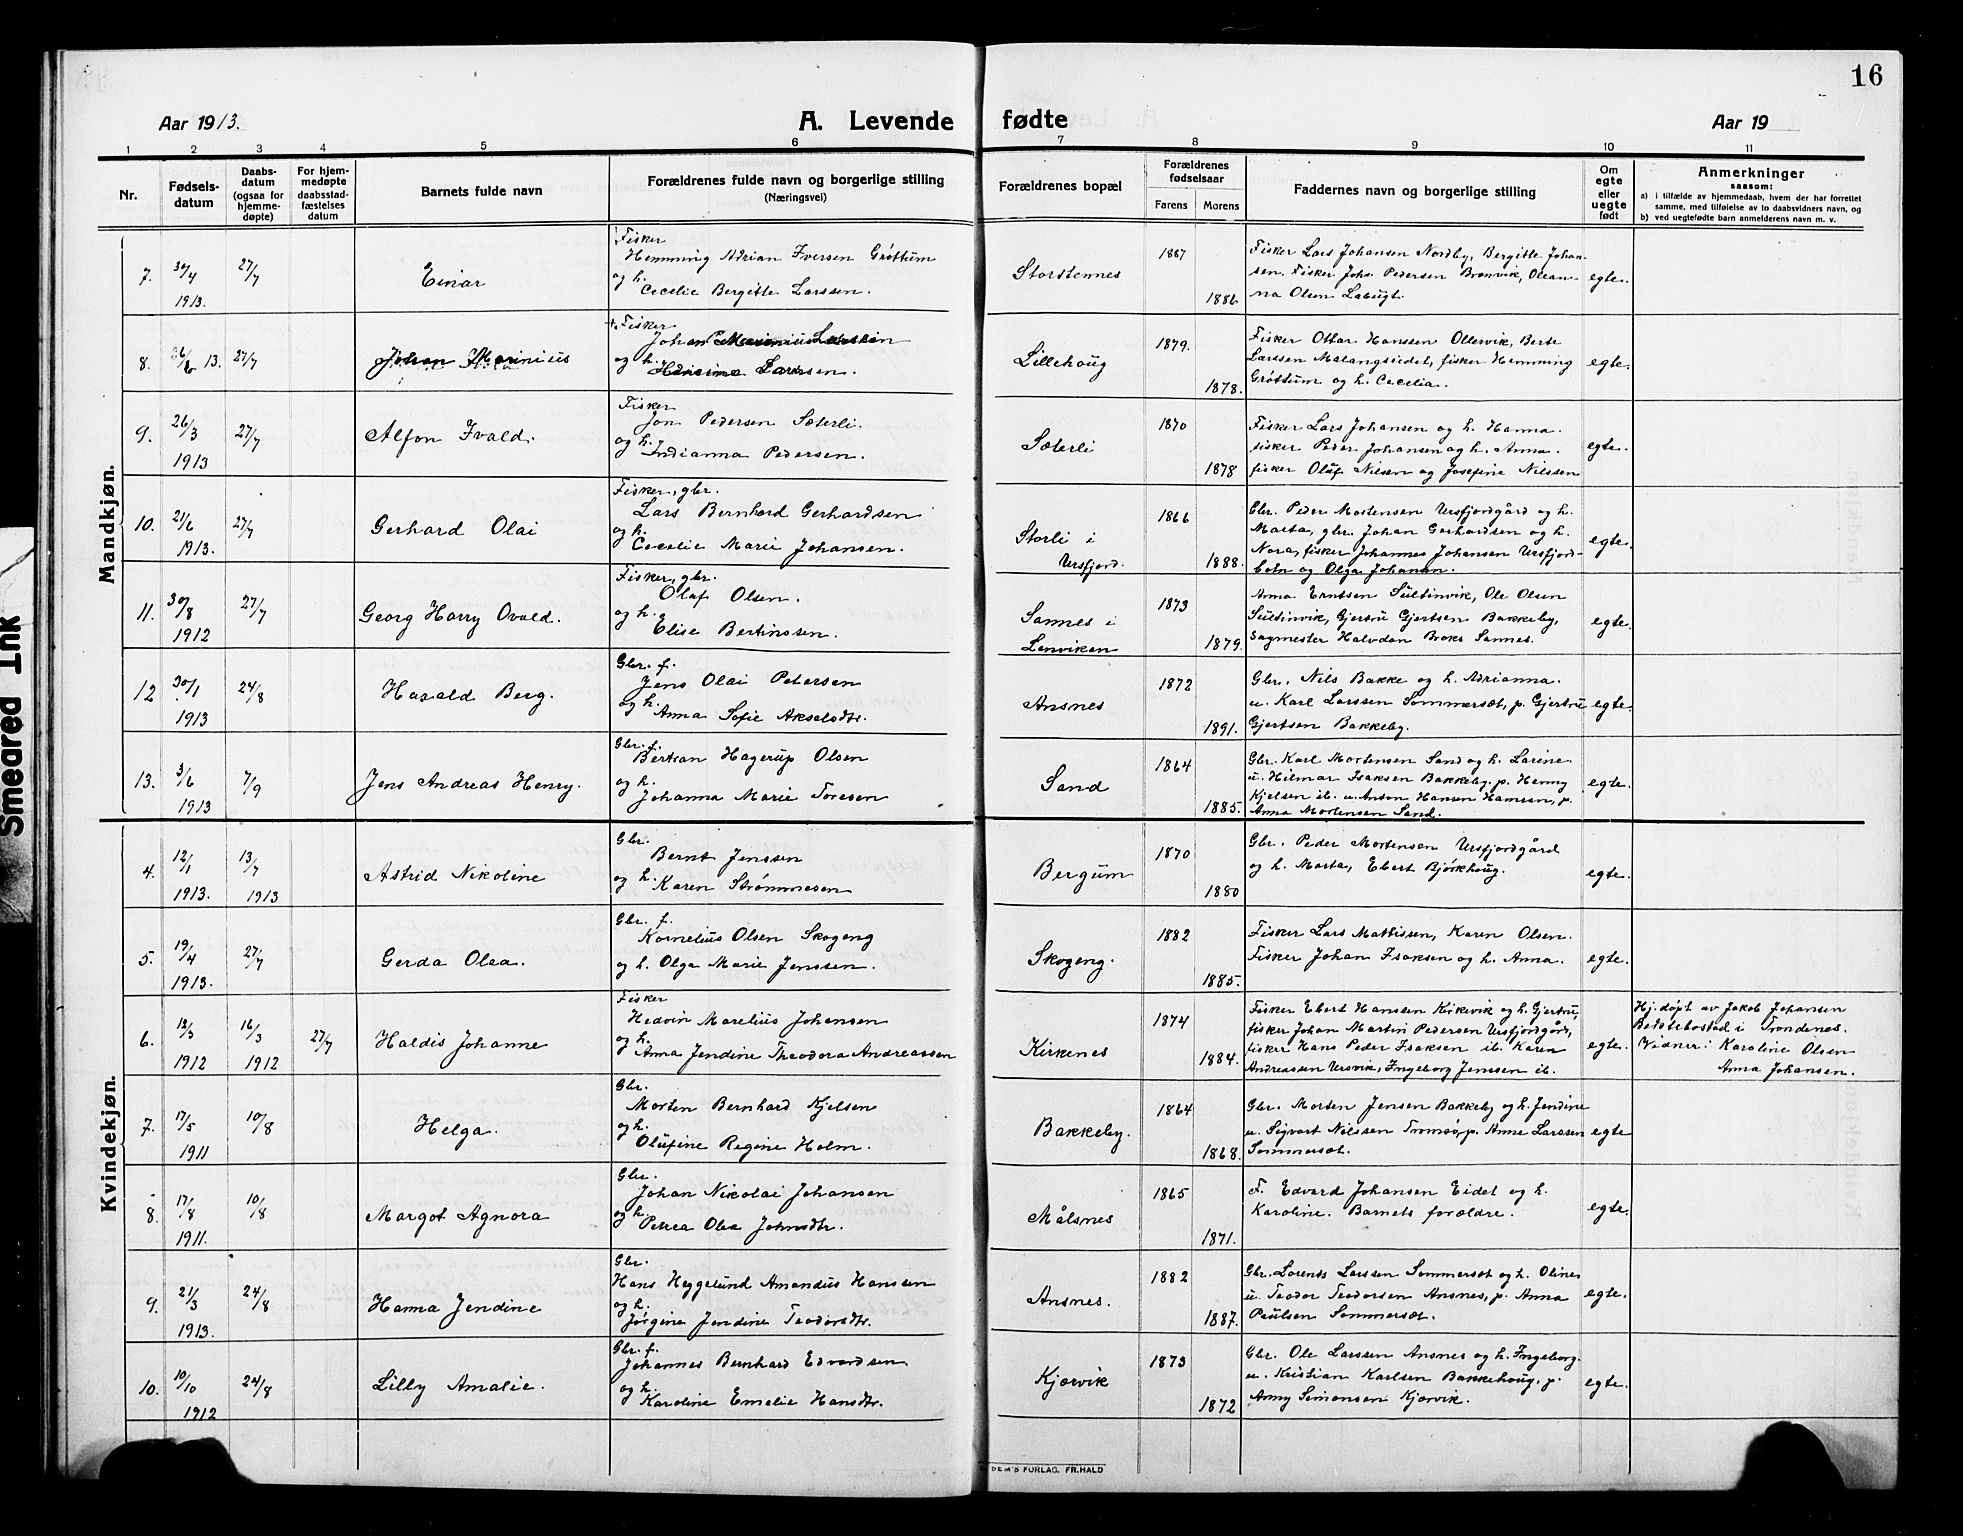 16
Aar 1913.
A. Levende fødte
Aar 19
1 2 3 4 5 6 7 8 9 10 11
Nr.
Fødsels-
datum
Daabs-
datum
(ogsaa for
hjemme-
døpte)
For hjem-
medøpte
daabsstad-
fæstelses
datum
Barnets fulde navn
Forældrenes fulde navn og borgerlige stilling
(Næringsvei)
Forældrenes bopæl
Forældrenes
fødselsaar
Farens Morens
Faddernes navn og borgerlige stilling
Om
egte
eller
uegte
født
Anmerkninger
saasom:
a) i tilfælde av hjemmedaab, hvem der har forrettet
samme, med tilføielse av to daabsvidners navn, og
b) ved uegtefødte barn anmelderens navn m. v.
Mandkjøn.
7. 30/4 1913. 27/7
Einar
Fisker
Hemming Adrian Iversen Grøttum
og h.
Cecelie Bergitte Larssen.
Storstennes
1887
1886
Fisker Lars Johansen Nordby, Bergitte Johan-
sen. Fisker Johs. Pedersen Brønvik, Olean-
na Olsen Labugt.
egte.
8. 13. 27/7
Johan Marinius
Fisker
Johan
og h.
Larssen.
Lillehoug
1879.
1878.
Fisker Ottar Hanssen Ollervik, Berte
Larssen Malangseidet, fisker Hemming
Grøttum og h. Cecelia.
egte.
9. 26/3 1913 27/7
Alfon Ivald.
Fisker
Jon Pedersen Sæterli.
og h.
Indianna Pedersen.
Sæterli
1870
1878
Fisker Lars Johansen og h. Hanna.
fisker Peder Johansen og h. Anna.
fisker Olüf Nilsen og Josefine Nilssen
egte.
10. 21/6 1913. 27/7
Gerhard Olai
Fisker, gbr.
Lars Bernhard Gerhardsen
og h.
Cecelie Marie Johansen.
Storli i
Ursfjord.
1866
1888.
Gbr. Peder Mortensen Ursfjordgård og h.
Marta, gbr. Johan Gerhardsen og h.
Nora, fisker Johannes Johansen Ursfjord-
botn og Olga Johansen.
egte.
11. 30/8 1912 27/7
Georg Harry Ovald.
Fisker, gbr.
Olaf Olsen.
og h.
Elise Bertinssen.
Sannes i
Lenviken
1873
1879.
Anna Erntsen Sültinvik, Ole Olsen
Sültinvik, Gjertru Gjertsen Bakkeby,
sagmester Halvdan Broks Sannes.
egte.
12 30/1 1913 24/8
Harald Berg.
Gbr. f.
Jens Olai Petersen
og h.
Anna Sofie Akselsdtr.
Ansnes
1872
1891.
Gbr. Nils Bakke og h. Adrianna.
u. Karl Larssen Sommersæt, p. Gjertru
Gjertsen Bakkeby.
egte.
13. 3/6 1913 7/9
Jens Andreas Henry.
Gbr. f.
Bertran Hagerup Olsen
og h.
Johanna Marie Toresen
Sand
1864
1885.
Gbr. Karl Mortensen Sand og h. Larine
u. Hilmar Isaksen Bakkeby, p. Henny
Kjelsen ib. u. Anton Hansen Hamsen, p.
Anna Mortensen Sand.
egte.
Kvindekjøn.
4. 12/1 1913. 13/7 1913
Astrid Nikoline
Gbr.
Bernt Jenssen
og h.
Karen Strømmesen
Bergum
1870
1880
Gbr. Peder Mortensen Ursfjordgård
og h. Marta, Ebert Bjørkhoug.
egte.
5. 19/4 1913. 27/7
Gerda Olea.
Gbr. f.
Kornelius Olsen Skogeng
og h. Olga Marie Jenssen.
Skogeng.
1882
1885.
Fisker Lars Mattissen, Karen Olsen.
Fisker Johan Isaksen og h. Anna.
egte.
6. 13/3 1912 16/3 1912 27/7
Haldis Johanne
Fisker
Hedvin Marelius Johansen
og h.
Anna Jendine Theodora Andreassen
Kirkenes
1874
1884.
Fisker Ebert Hansen Kirkevik og h. Gjertru,
fisker Johan Martin Pedersen Ursfjordgård,
fisker Hans Peder Isaksen ib. Karen
Andreassen Ursvik, Ingeborg Jenssen ib.
egte.
Hj. døpt av Jakob Johansen
i Trondenes.
Vidner: Karoline Olsen
Anna Johansen.
7. 17/5 1911 10/8
Helga.
Gbr.
Morten Bernhard Kjelsen
og h.
Olüfine Regine Holm.
Bakkeby.
1864
1868.
Gbr. Morten Jensen Bakkeby og h. Jendine
u. Sigvart Nilssen Tromsø, p. Anne Larssen
Sommersæt.
egte
8. 17/8 1911. 10/8
Margot Agnora
Gbr.
Johan Nikolai Johansen
og h.
Petrea Olea Johnsdtr.
Målsnes
1865
1871.
F. Edvard Johansen Eidet og h.
Karoline. Barnets forældre.
egte.
9. 21/3 1913. 24/8
Hanna Jendine
Gbr.
Hans Heggelund Amandus Hanssen
og h.
Jørgine Jendine Teodorsdtr.
Ansnes.
1882
1887.
Gbr. Lorents Larssen Sommersæt og h. Oline
u. Teodor Teodorsen Ansnes, p. Anna
Paulsen Sommersæt.
egte.
10. 10/10 1912 24/8
Lilly Amalie.
Gbr. f.
Johannes Bernhard Edvardsen
og h.
Karoline Emelie Hansdtr.
Kjørvik
1873
1872
Gbr. Ole Larssen Ansnes og h. Ingeborg.
u. Kristian Karlsen Bakkehoug, p.
Anny Simonsen Kjørvik.
egte.
DEM'S FORLAG. FR. HALD
Smeared Ink